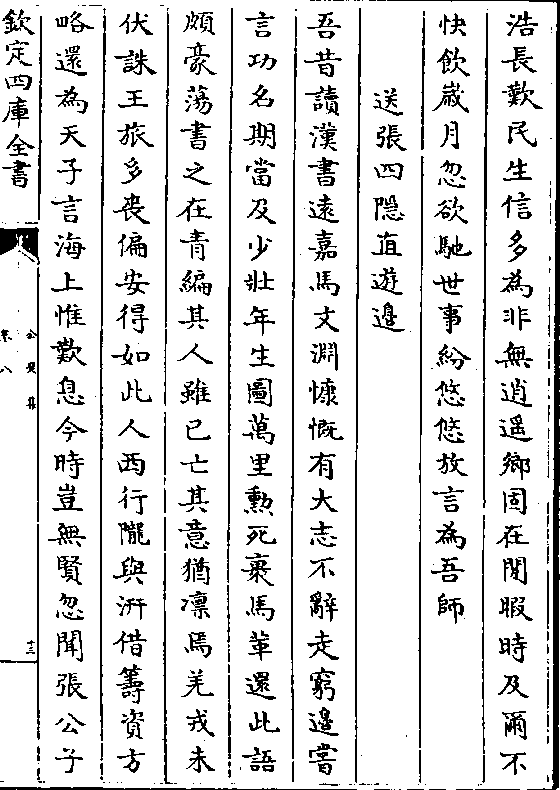 浩長歎民生信多為非無逍遥鄉固在閒暇時及爾不
快飲歲月忽欲馳世事紛悠悠放言為吾師
送張四隱直遊邊
吾昔讀漢書遠嘉馬文淵慷慨有大志不辭走窮邊嘗
言功名期當及少壯年生圖萬里勲死裹馬革還此語
頗豪蕩書之在青編其人雖已亡其意猶凛焉羌戎未
伏誅王旅多喪偏安得如此人西行隴與汧借籌資方
略還為天子言海上惟歎息今時豈無賢忽聞張公子
欽定四庫全書
公是集
卷八
十三